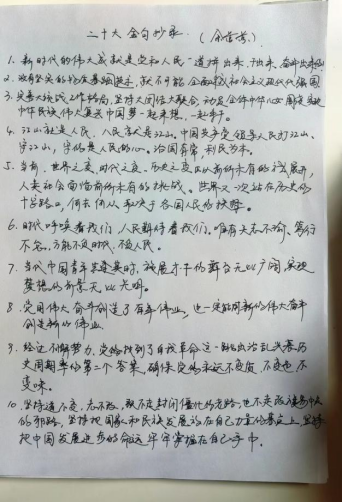 二十大金句抄录
1. 新时代的伟大成就是党和人民一道拼出来、干出来、奋斗出来的
2. 没有坚实的物质基础技术,就不可能全面建成社会主义现代化强国
3. 完善大统战工作格局,坚持大团结大联合,动员全体中华儿女围绕实现
中华民族伟大复兴中国梦一起来想,一起来干。
4. 江山就是人民,人民就是江山。中国共产党领导人民打江山、
守江山,守的是人民的心。治国有常,利民为本。
5. 当前,世界之变,时代之变,历史之变正以前所未有的方式展开,
人类社会面临前所未有的挑战。世界又一次站在历史的
十字路口,何去何从取决于各国人民的抉择。
6. 时代呼唤着我们,人民期待着我们,唯有矢志不渝、笃行
不怠,方能不负时代、不负人民。
7. 当代中国青年生逢其时,施展才干的舞台无比广阔,实现
梦想的前景无比光明。
8. 党用伟大奋斗创造了百年伟业,也一定能用新的伟大奋斗
创造新的伟业
9. 经过不懈努力,党找到了自我革命这一跳出治乱兴衰历
史周期率的第二个答案,确保党永远不变质、不变色、不
变味。
10. 坚持道不变、志不改,既不走封闭僵化的老路,也不走改旗易帜
的邪路,坚持把国家和民族发展放在自己力量的基点上,坚持
把中国发展进步的命运牢牢掌握在自己手中。